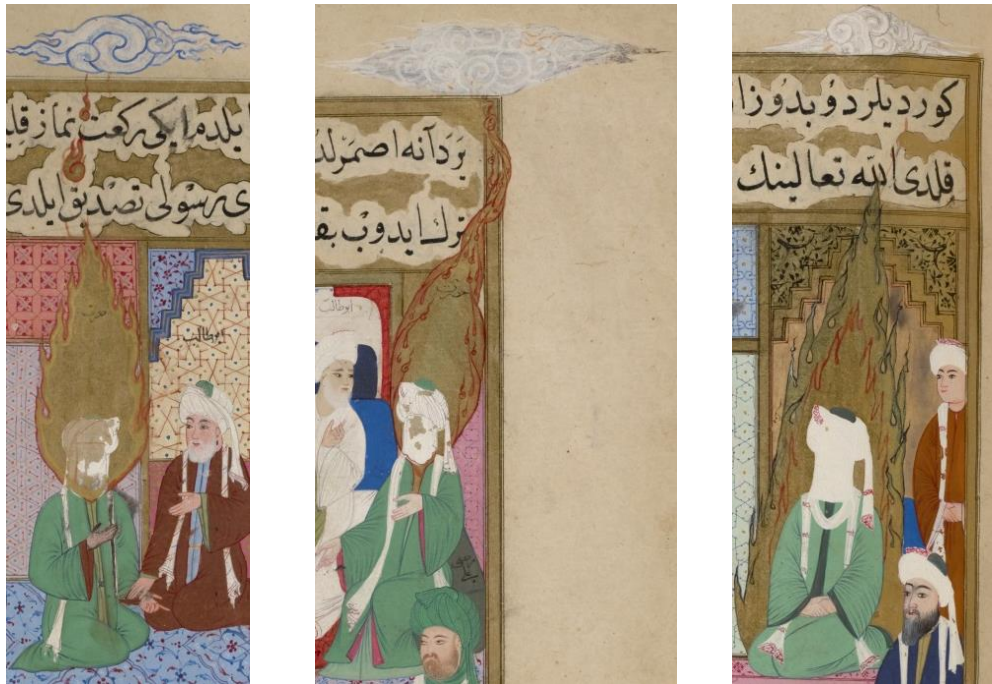 یلدم ایکی رکعت نماز قلی
ی رسولی تصدیق ایلدی
ابوطالب
اصمرلد
ترك ایدوب بقـ
ابوطالب
كوردیلر دوبدوزا
قلدی الله تعالینك